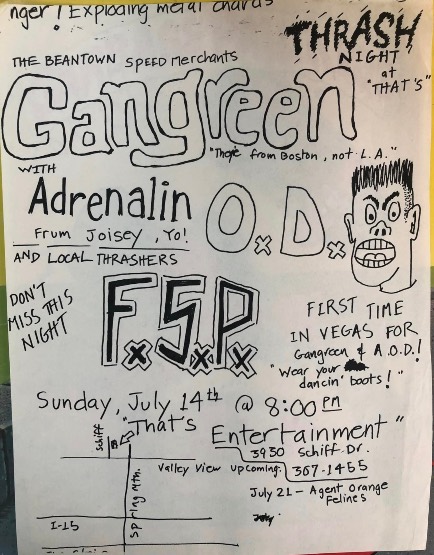 nger! Exploding metal chards
THRASH
NIGHT
at
"THAT'S"
THE BEANTOWN SPEED MERCHANTS
Gangreen
"There from Boston, not L.A."
WITH
Adrenalin O.D.
From Joisey, Yo!
AND LOCAL THRASHERS
DON'T
MISS THIS
NIGHT
F.S.P.
FIRST TIME
IN VEGAS FOR
Gangreen & A.O.D.!
"Wear your
dancin' boots!"
Sunday, July 14th @ 8:00 PM
"That's
Entertainment"
3930 Schiff Dr.
Schiff
Valley View upcoming: 367-1455
July 21 - Agent Orange
Felines
Spring Mtn.
I-15